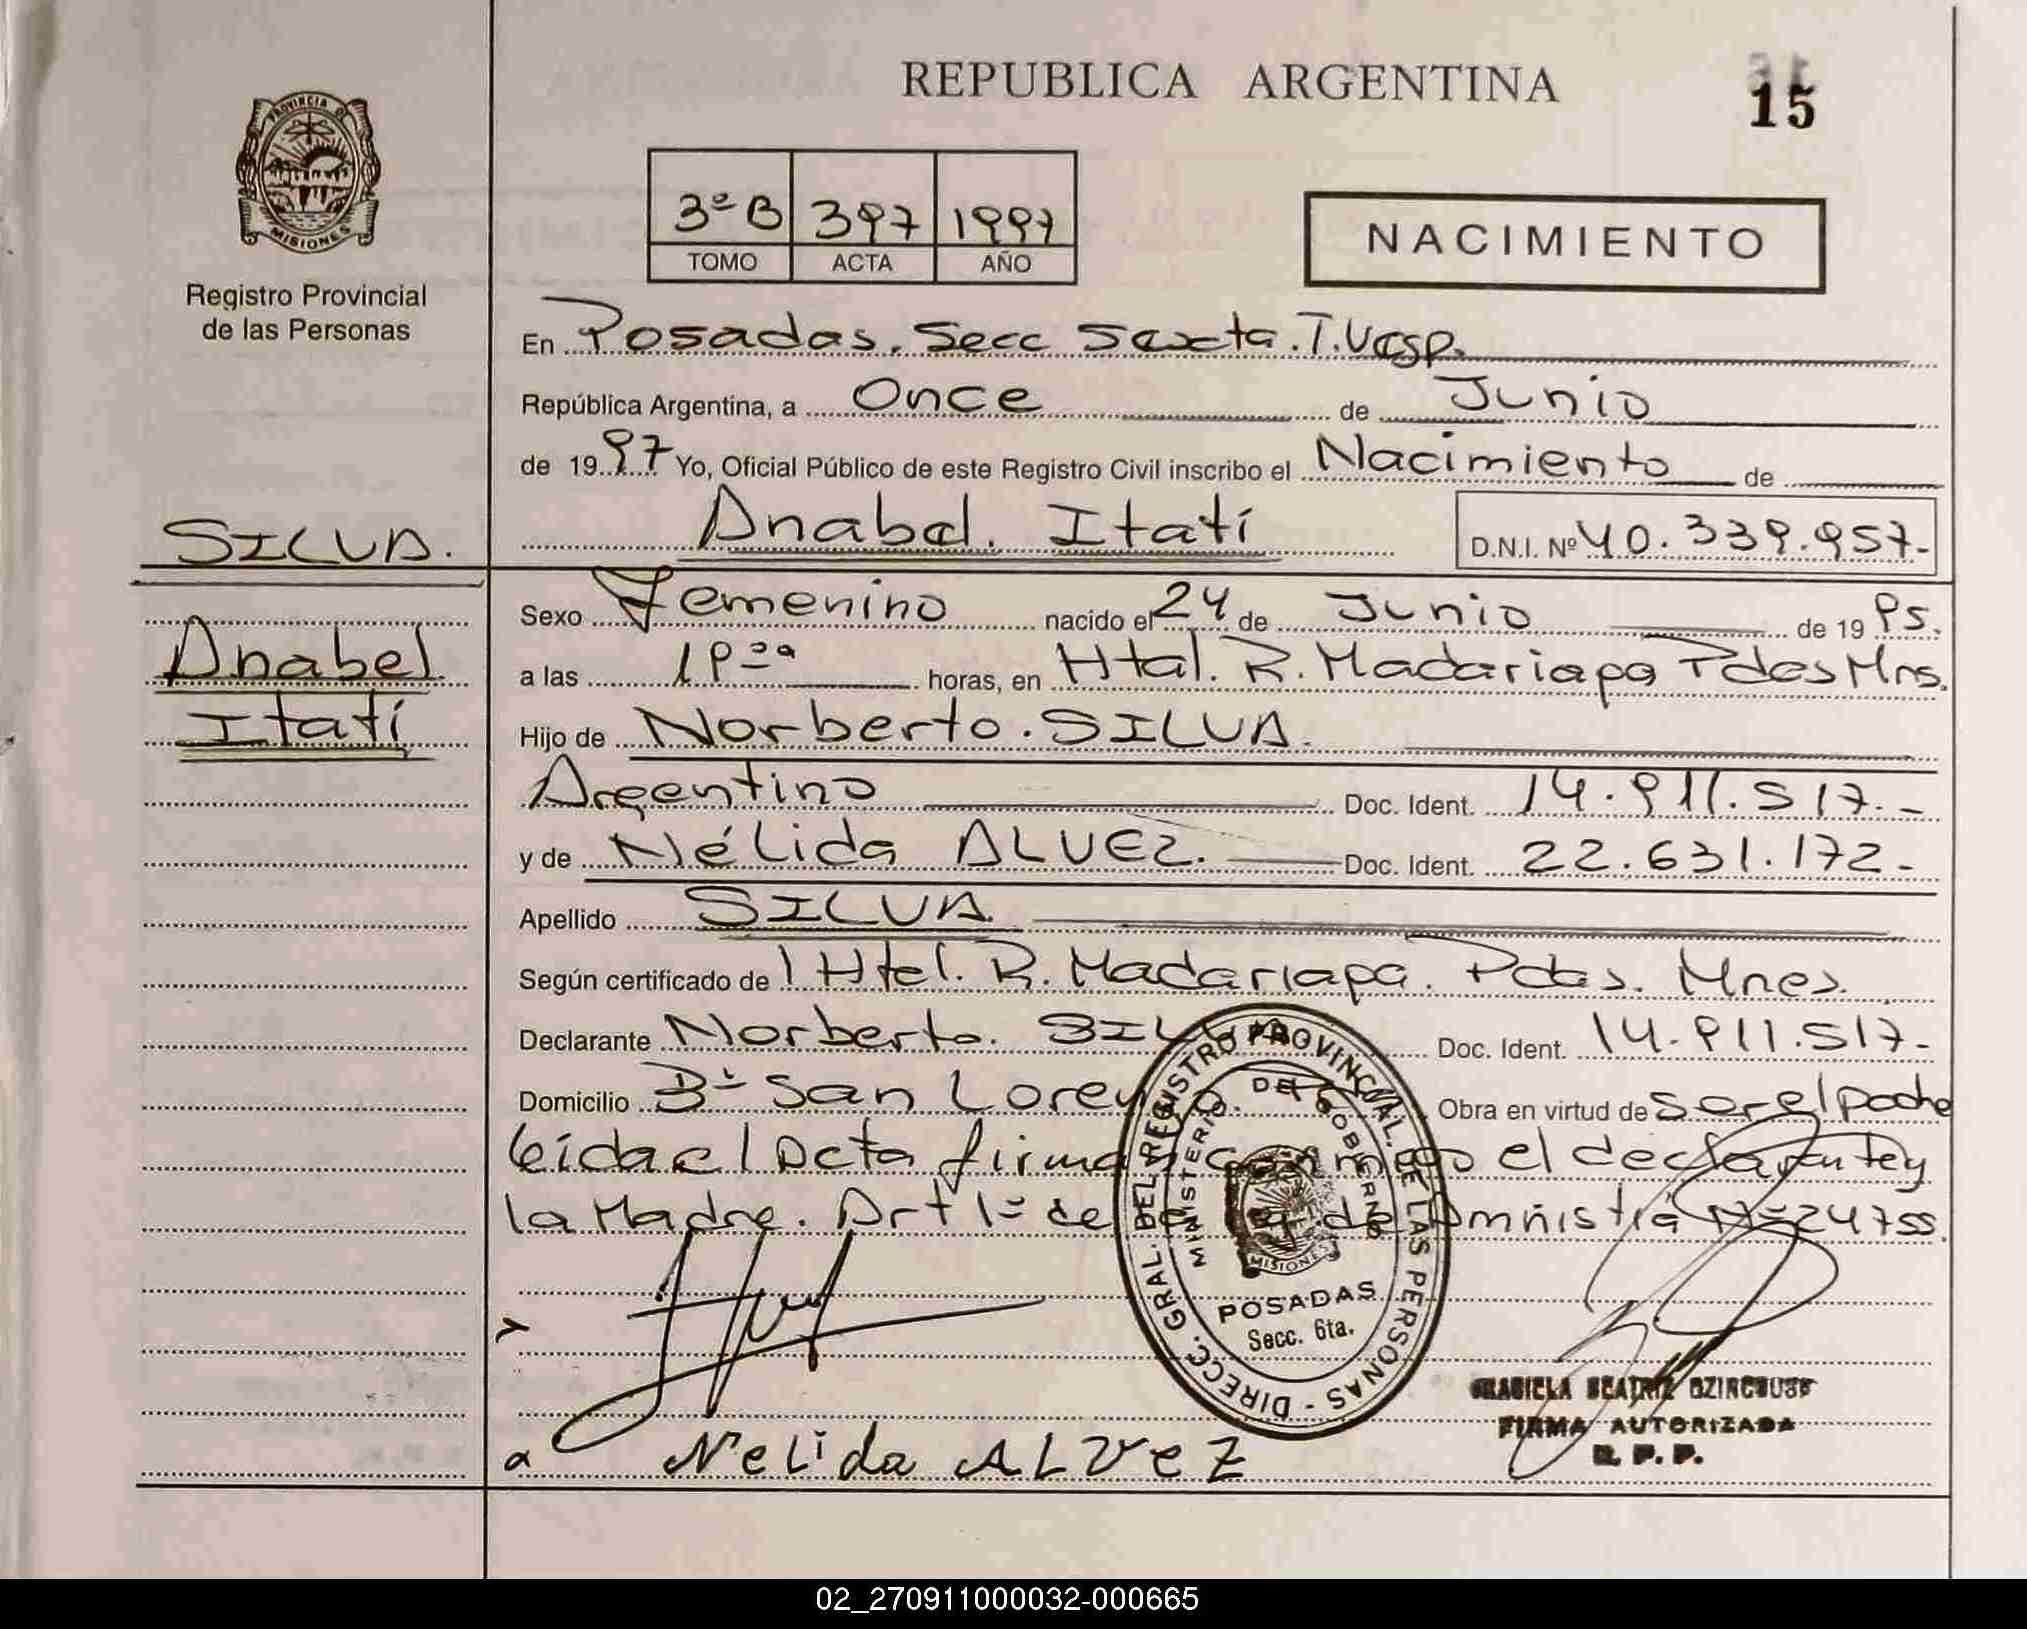 REPUBLICA ARGENTINA
15
PROVINCIA DE
MISIONES
Registro Provincial
de las Personas
3º B 397 1997
TOMO ACTA AÑO
NACIMIENTO
En Posadas. Secc Sexta. T. Vesp.
República Argentina, a Once de Junio
de 1997 Yo, Oficial Público de este Registro Civil inscribo el Nacimiento de
SILVA. Anabel. Itatí D.N.I. Nº 40.339.957-
Sexo Femenino nacido el 24 de Junio de 1995.
Anabel
a las 19ºº horas, en Htal. R. Madariaga Pdas Mns.
Itatí
Hijo de Norberto. SILVA.
Argentino Doc. Ident. 14.911.517.-
y de Nélida ALVEZ. Doc. Ident. 22.631.172-
Apellido SILVA
Según certificado de l Htal. R. Madariaga. Pdas. Mnes.
Declarante Norberto. SILVA Doc. Ident. 14.911.517-
Domicilio Bº San Lorenzo. Obra en virtud de Ser el padre
leída el Acta firman conmigo el declarante y
la Madre. Art 1º de la Ley de Amnistía Nº 24755.
DIRECC. GRAL. DEL REGISTRO PROVINCIAL DE LAS PERSONAS -
MINISTERIO DE GOBIERNO
MISIONES
POSADAS
Secc. 6ta.
GRACIELA BEATRIZ
FIRMA AUTORIZADA
R. P. P.
Nelida ALVEZ
02_270911000032-000665